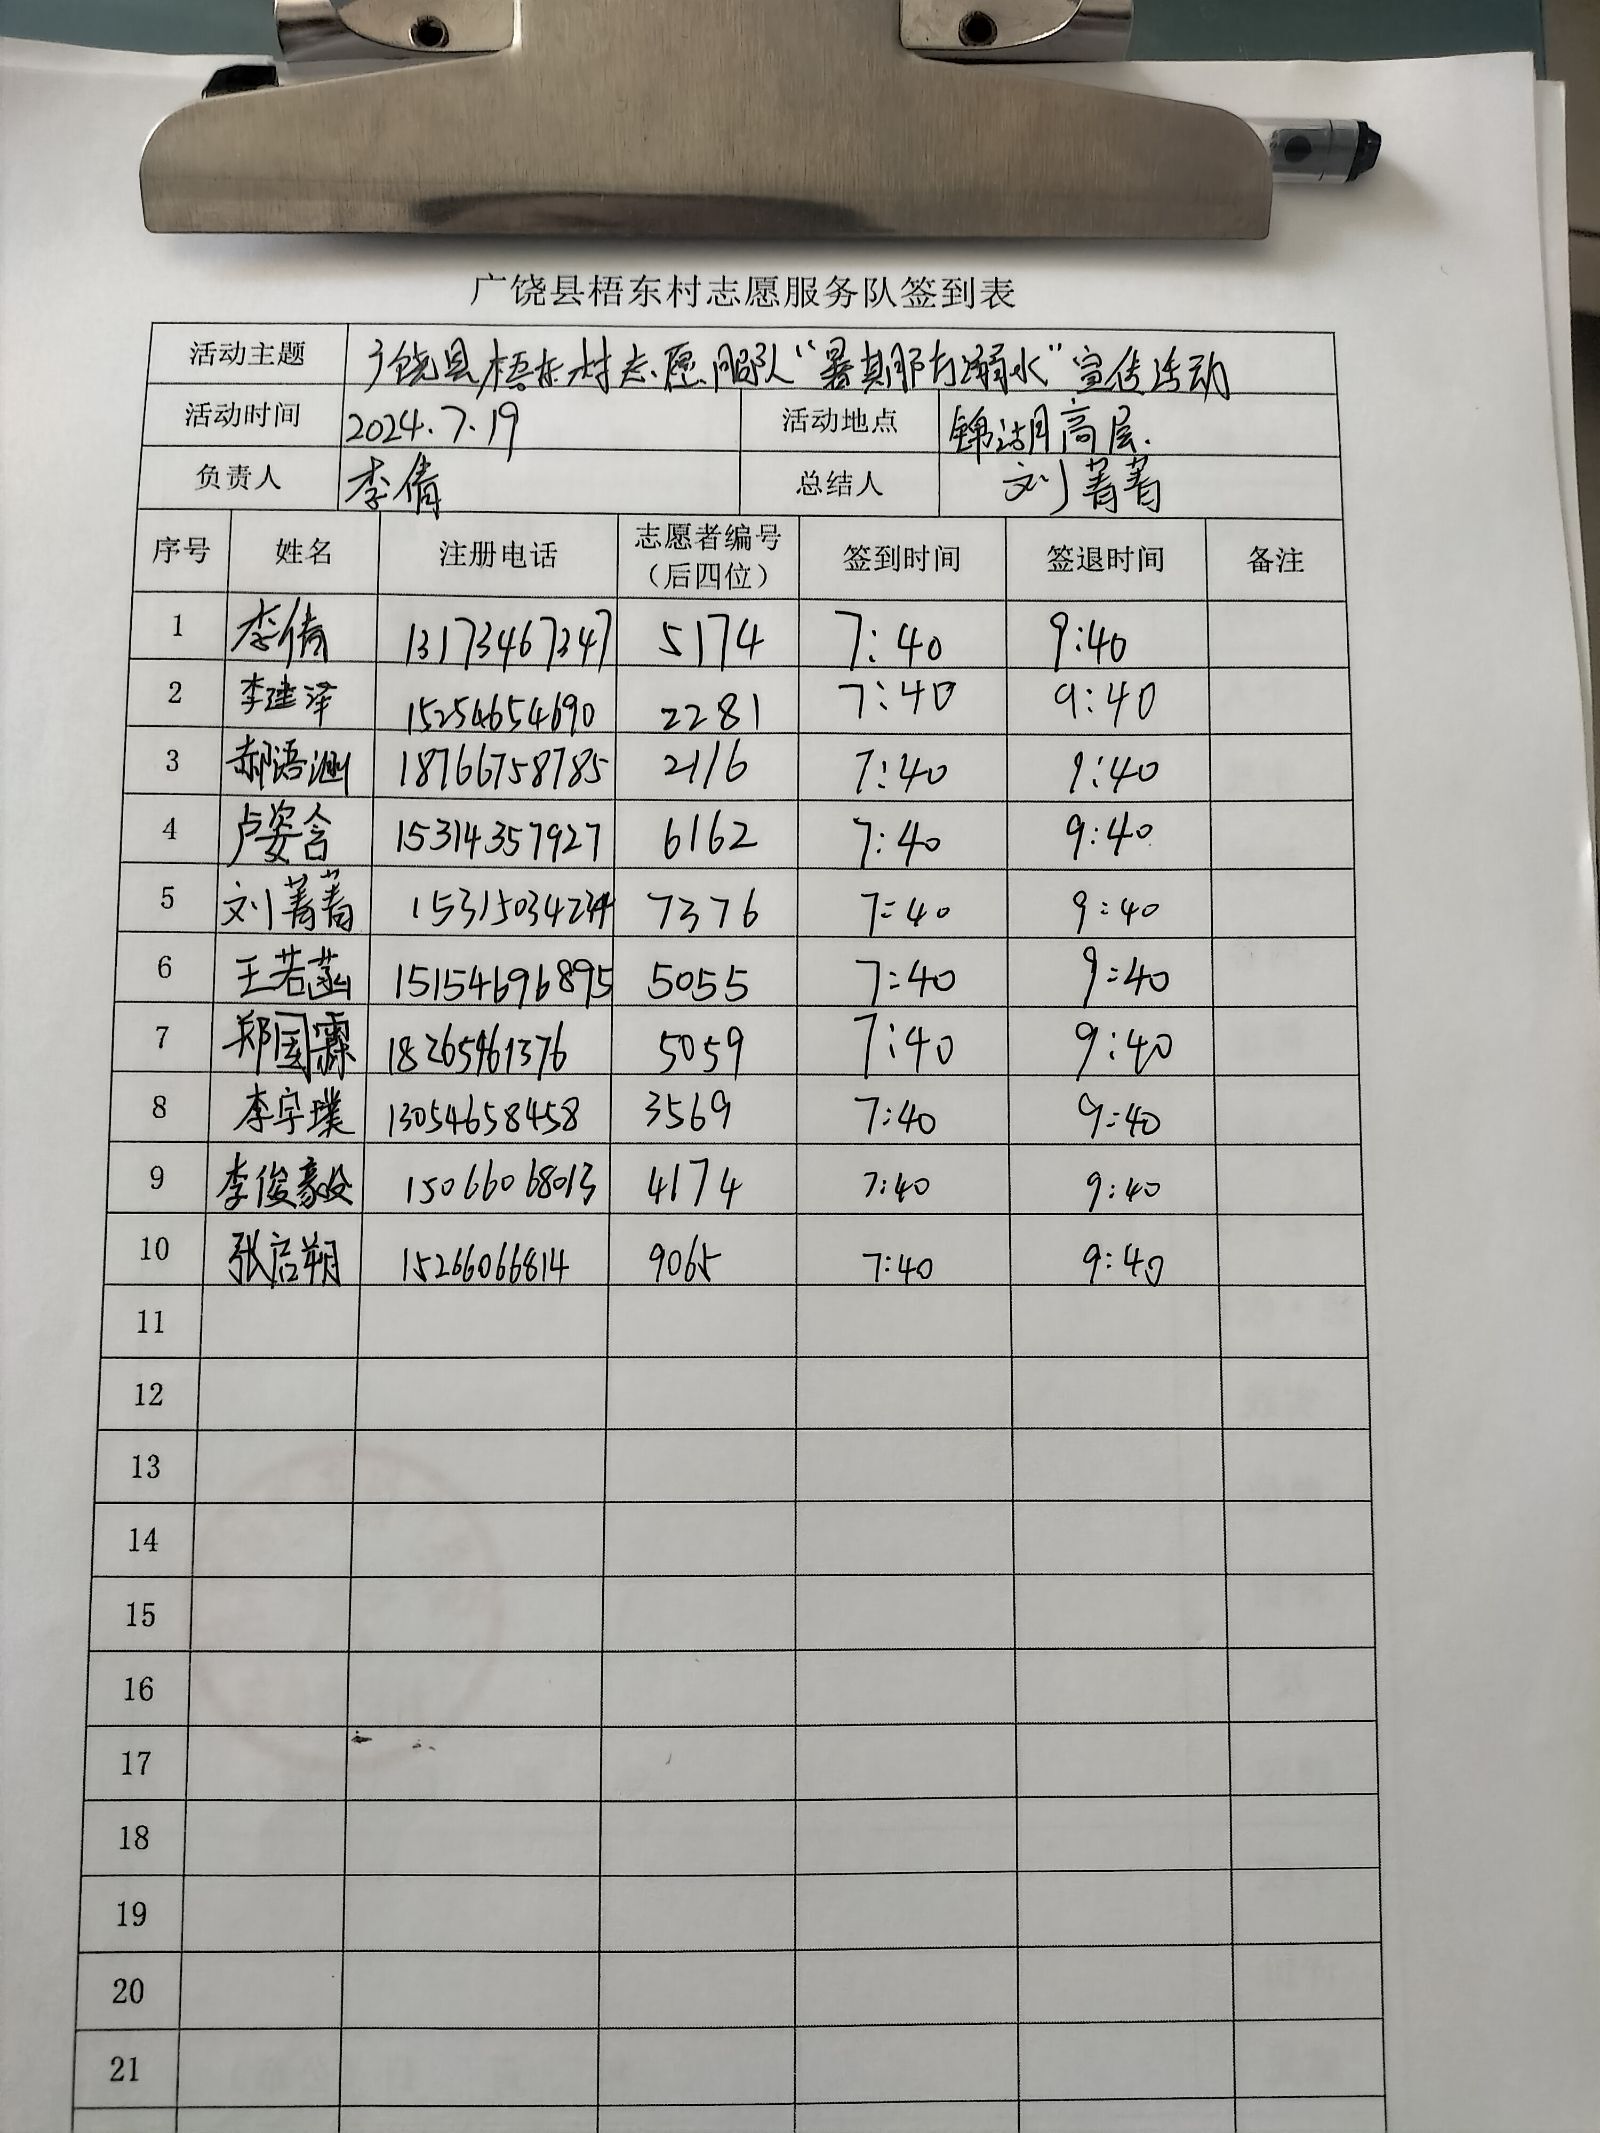 广饶县梧东村志愿服务队签到表
活动主题 广饶县梧东村志愿服队“暑期防溺水”宣传活动
活动时间 2024.7.19 活动地点 锦湖高层.
负责人 李倩 总结人 刘菁菁
序号 姓名 注册电话 志愿者编号（后四位） 签到时间 签退时间 备注
1 李倩 13173467347 5174 7:40 9:40
2 李建泽 15254654690 2281 7:40 9:40
3 郝语涵 18766758785 2116 7:40 9:40
4 卢姿含 15314357927 6162 7:40 9:40
5 刘菁菁 7376 7:40 9:40
6 王若菡 15154696895 5055 7:40 9:40
7 郑国霖 18265461376 5059 7:40 9:40
8 李宇璞 13054658458 3569 7:40 9:40
9 李俊毅 15066068013 4174 7:40 9:40
10 张启朔 15266066814 9065 7:40 9:40
11
12
13
14
15
16
17
18
19
20
21